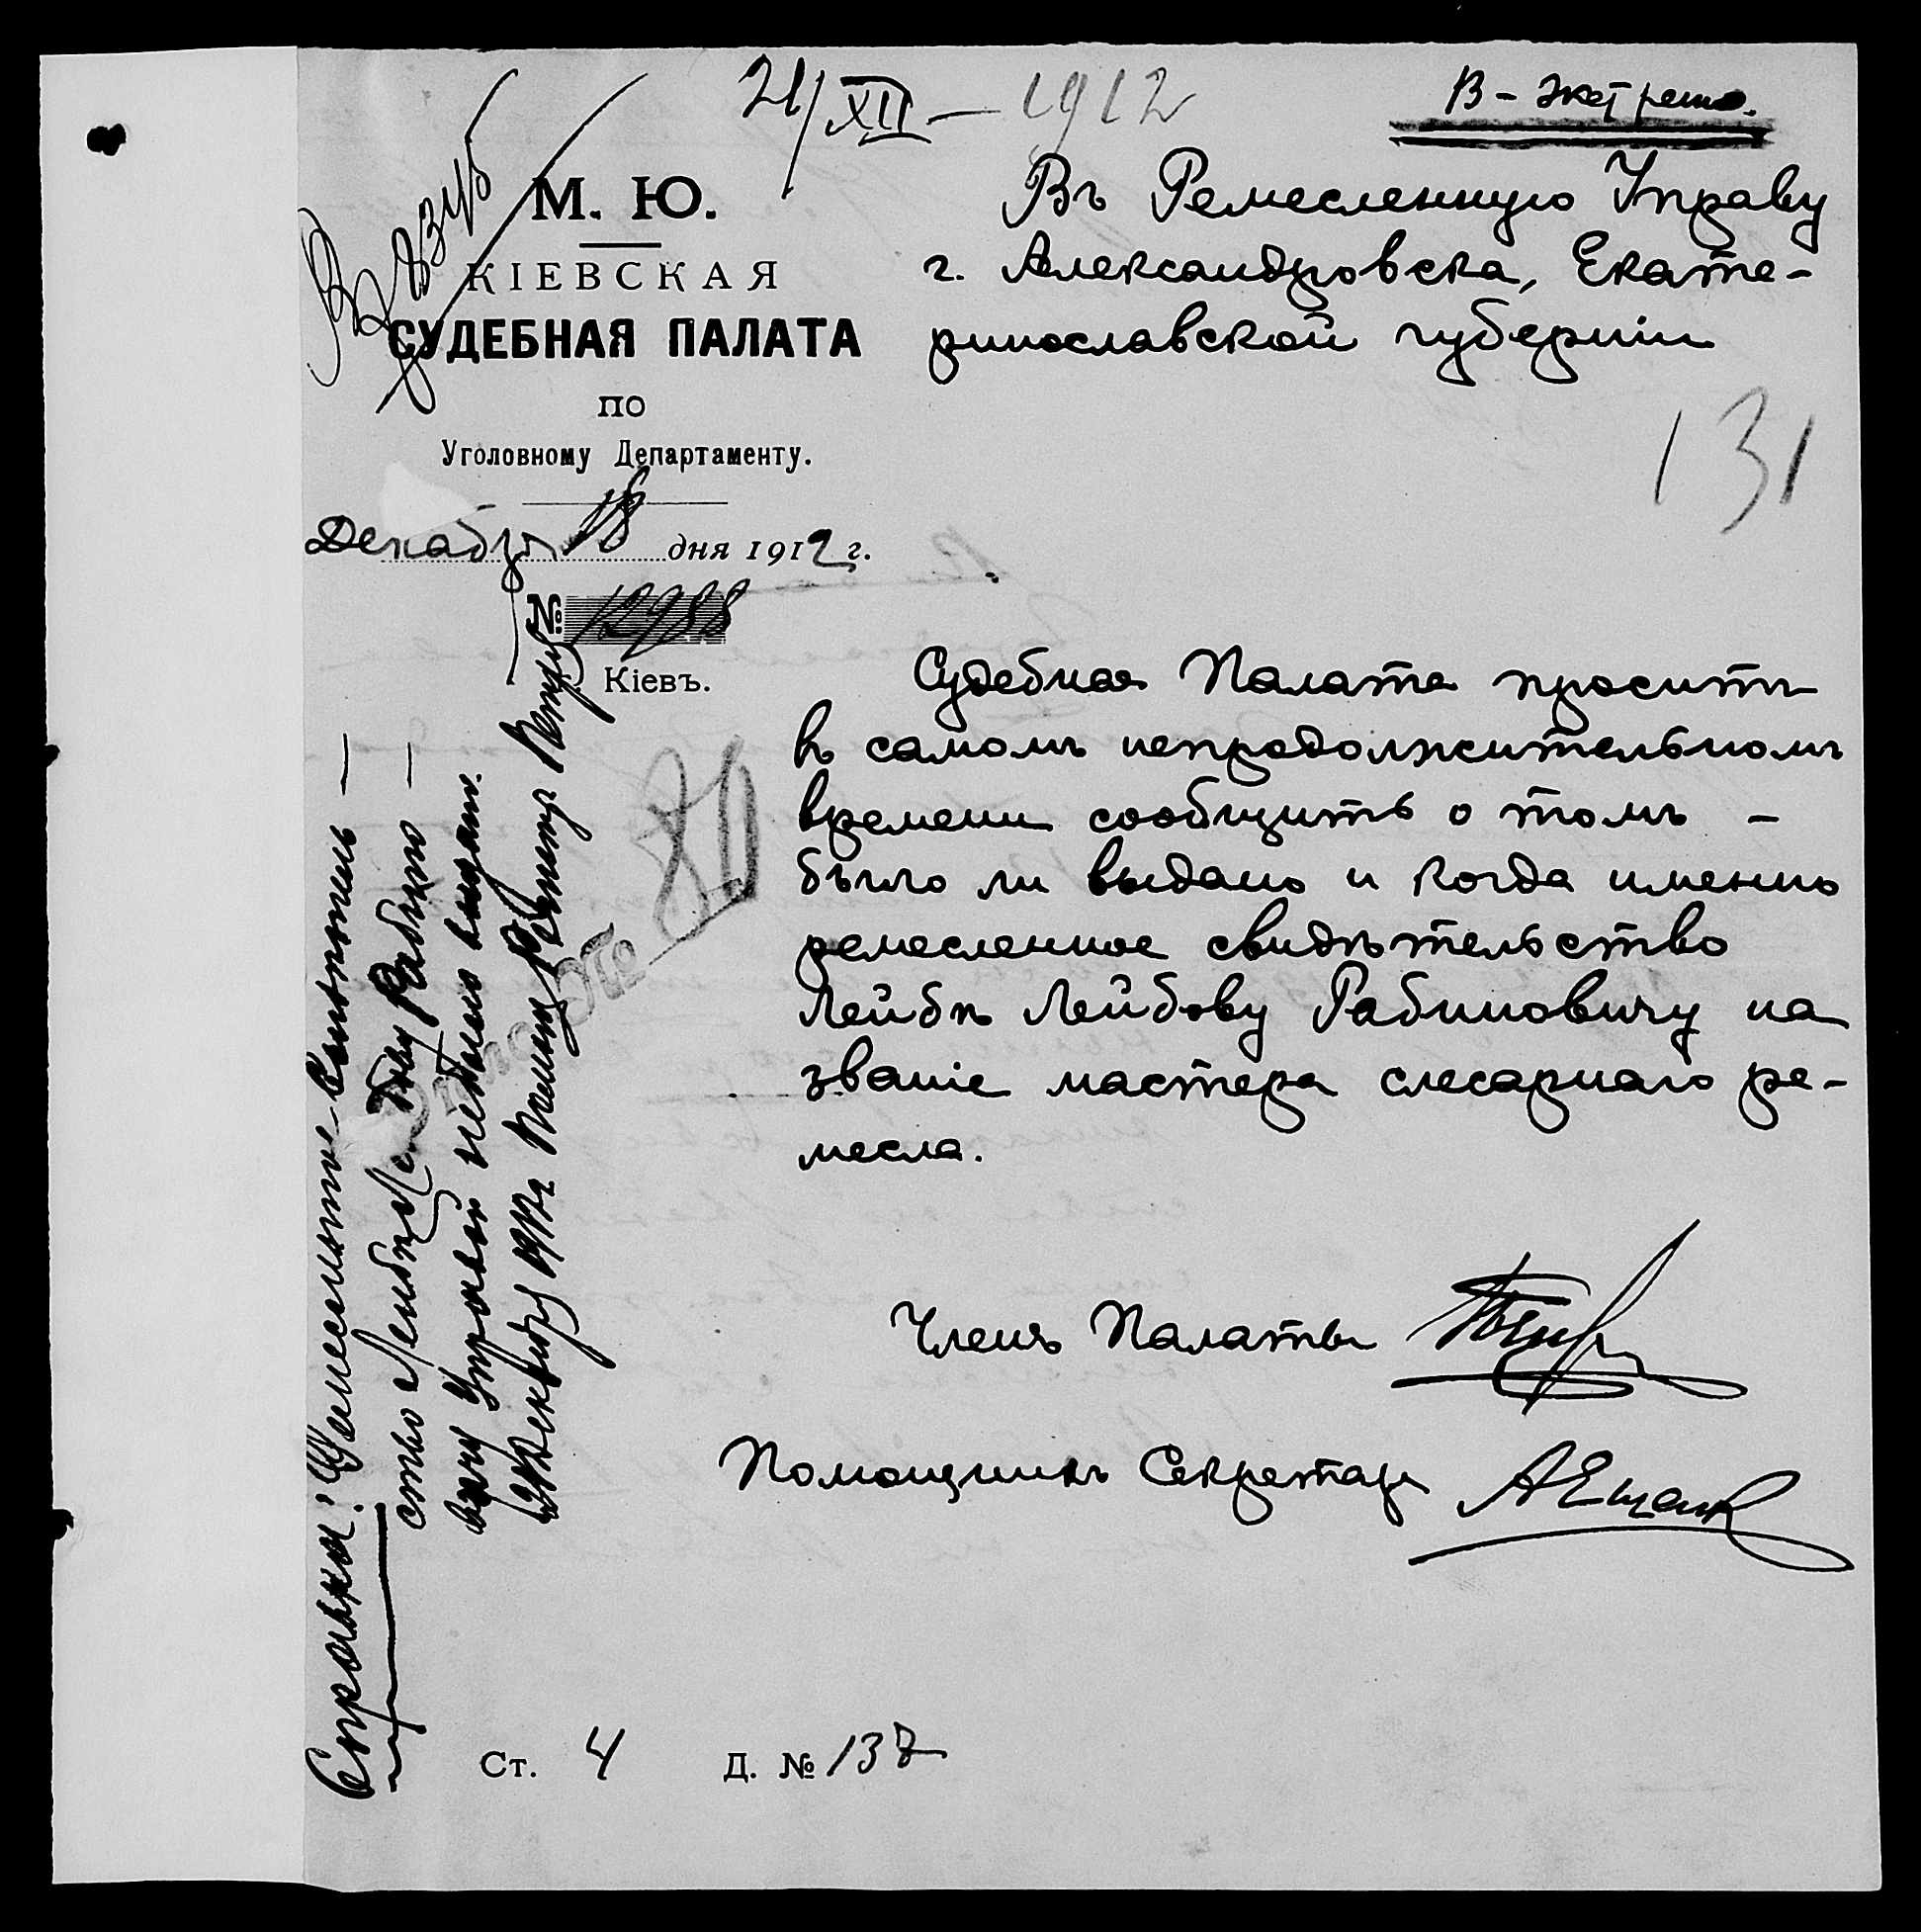 21/XII – 1912
В – экстренно.
М. Ю.
КІЕВСКАЯ
СУДЕБНАЯ ПАЛАТА
по
Уголовному Департаменту.
Декабря 18 дня 1912 г.
№ 12988
Кіевъ.
Въ Ремесленную Управу
г. Александровска, Екате-
ринославской губерніи
131
Судебная Палата проситъ
въ самомъ непродолжительномъ
времени сообщить о томъ –
было ли выдано и когда именно
ремесленное свидѣтельство
Лейбѣ Лейбову Рабиновичу на
званіе мастера слесарнаго ре-
месла.
Членъ Палаты
Помощникъ Секретаря
Ст. 4 Д. № 137
80
Справка: Ремесленное
ство Лейбѣ Рабино
вичу Управой не было выдано.
Декабря 1912 г.